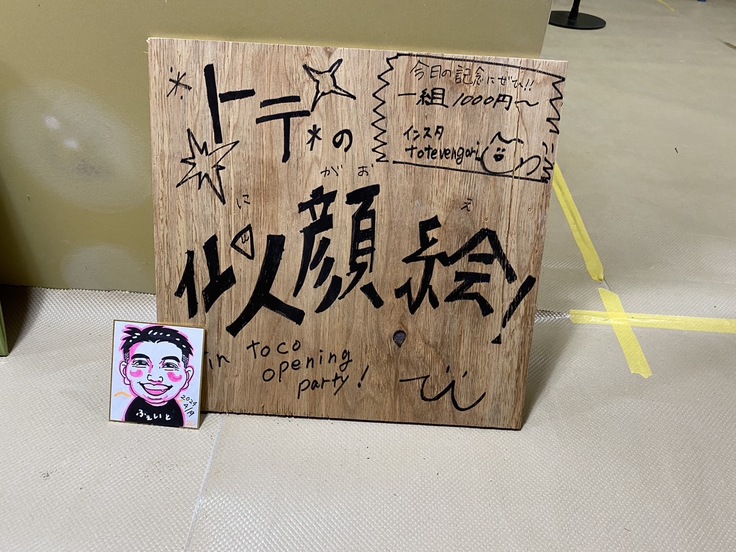 トテの
にがおえ
似顔絵!
今日の記念にぜひ!!
一組1000円〜
インスタ
totevengori
in toco
opening
party!
ふぇいと
2024